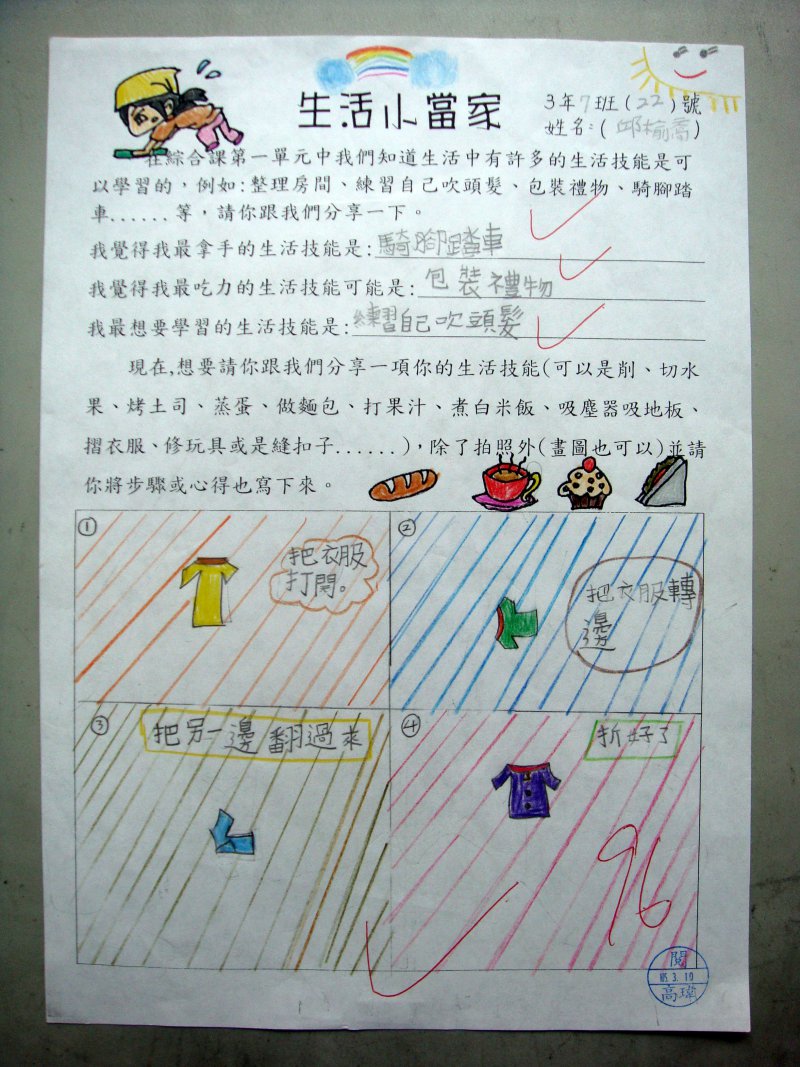 生活小當家
3年7班(22)號
姓名:(邱榆喬)
在綜合課第一單元中我們知道生活中有許多的生活技能是可
以學習的，例如:整理房間、練習自己吹頭髮、包裝禮物、騎腳踏
車......等，請你跟我們分享一下。
我覺得我最拿手的生活技能是:騎腳踏車
我覺得我最吃力的生活技能可能是:包裝禮物
我最想要學習的生活技能是:練習自己吹頭髮
現在,想要請你跟我們分享一項你的生活技能(可以是削、切水
果、烤土司、蒸蛋、做麵包、打果汁、煮白米飯、吸塵器吸地板、
摺衣服、修玩具或是縫扣子......)，除了拍照外(畫圖也可以)並請
你將步驟或心得也寫下來。
①
把衣服
打開。
②
把衣服轉
邊
③
把另一邊翻過來
④
折好了
96
閱
3.10
高瑋